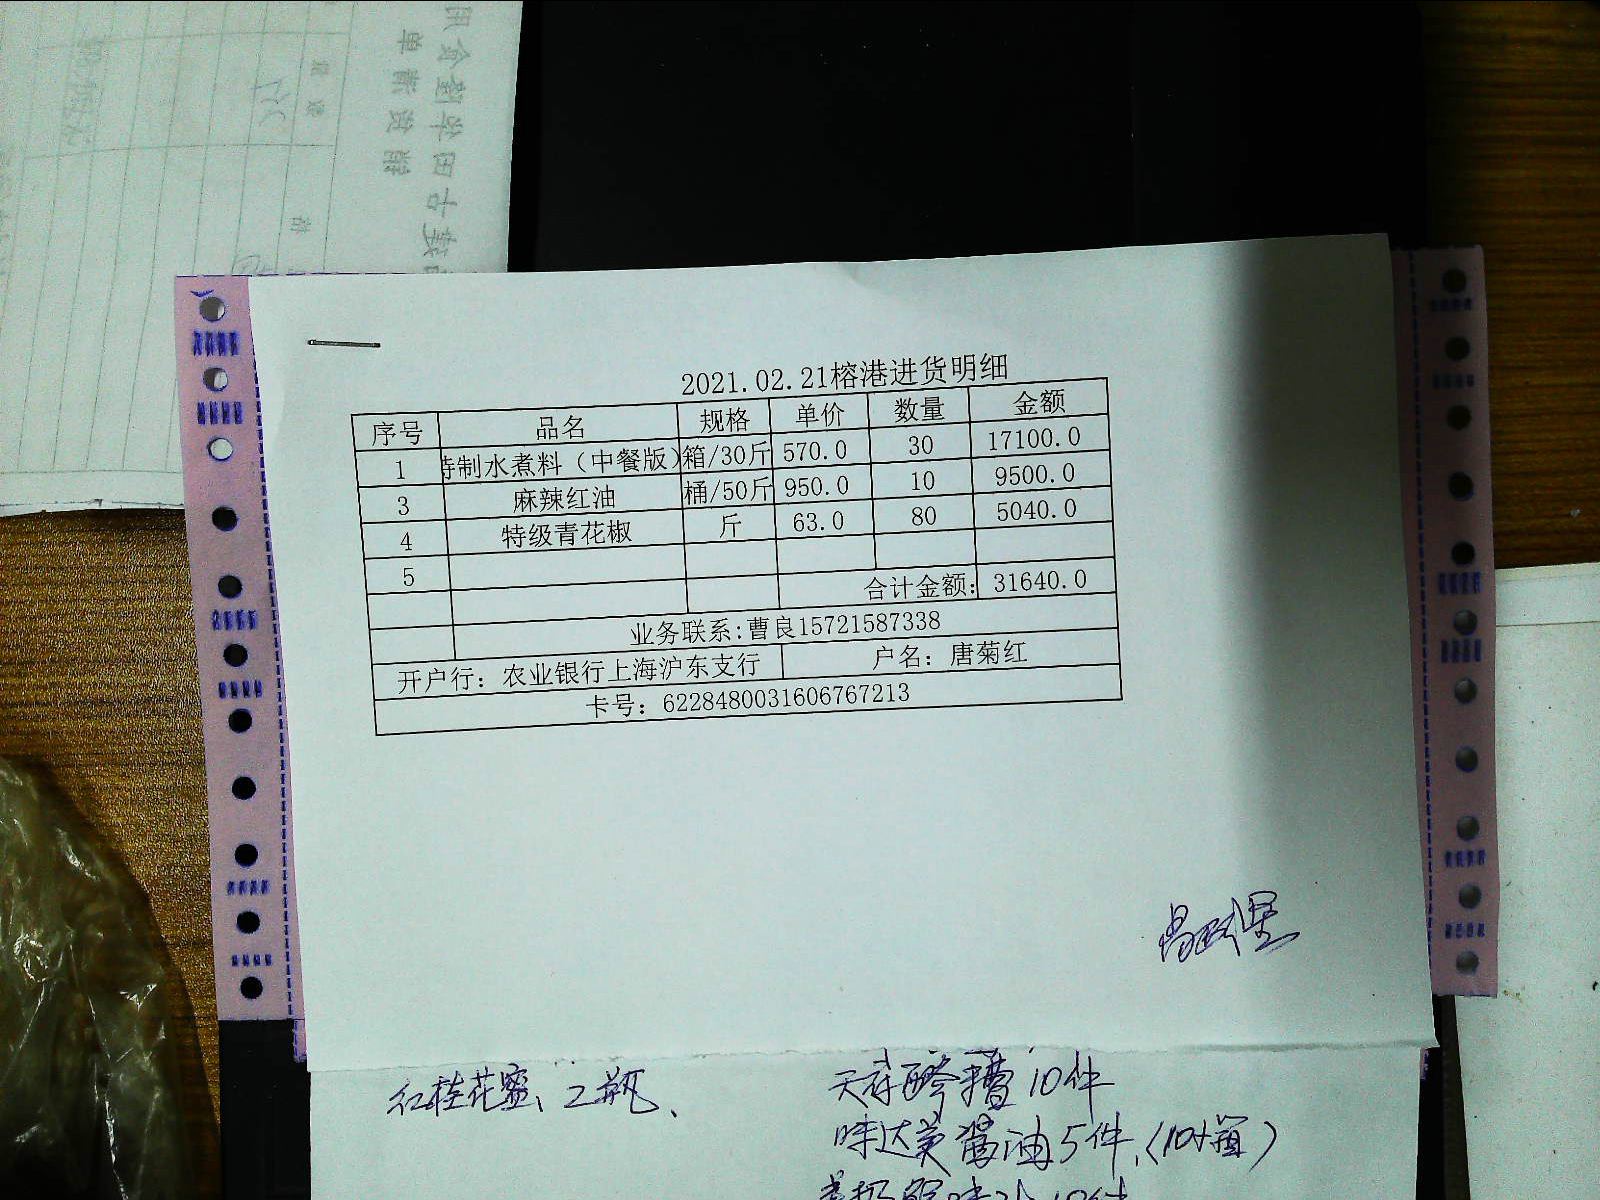 2021.02.21榕港进货明细
序号 品名 规格 单价 数量 金额
1 特制水煮料（中餐版） 箱/30斤 570.0 30 17100.0
3 麻辣红油 桶/50斤 950.0 10 9500.0
4 特级青花椒 斤 63.0 80 5040.0
5
合计金额: 31640.0
业务联系:曹良15721587338
开户行: 农业银行上海沪东支行 户名: 唐菊红
卡号: 6228480031606767213
红桂花蜜、2瓶、
酵糟10件
味达美酱油5件、(10箱)